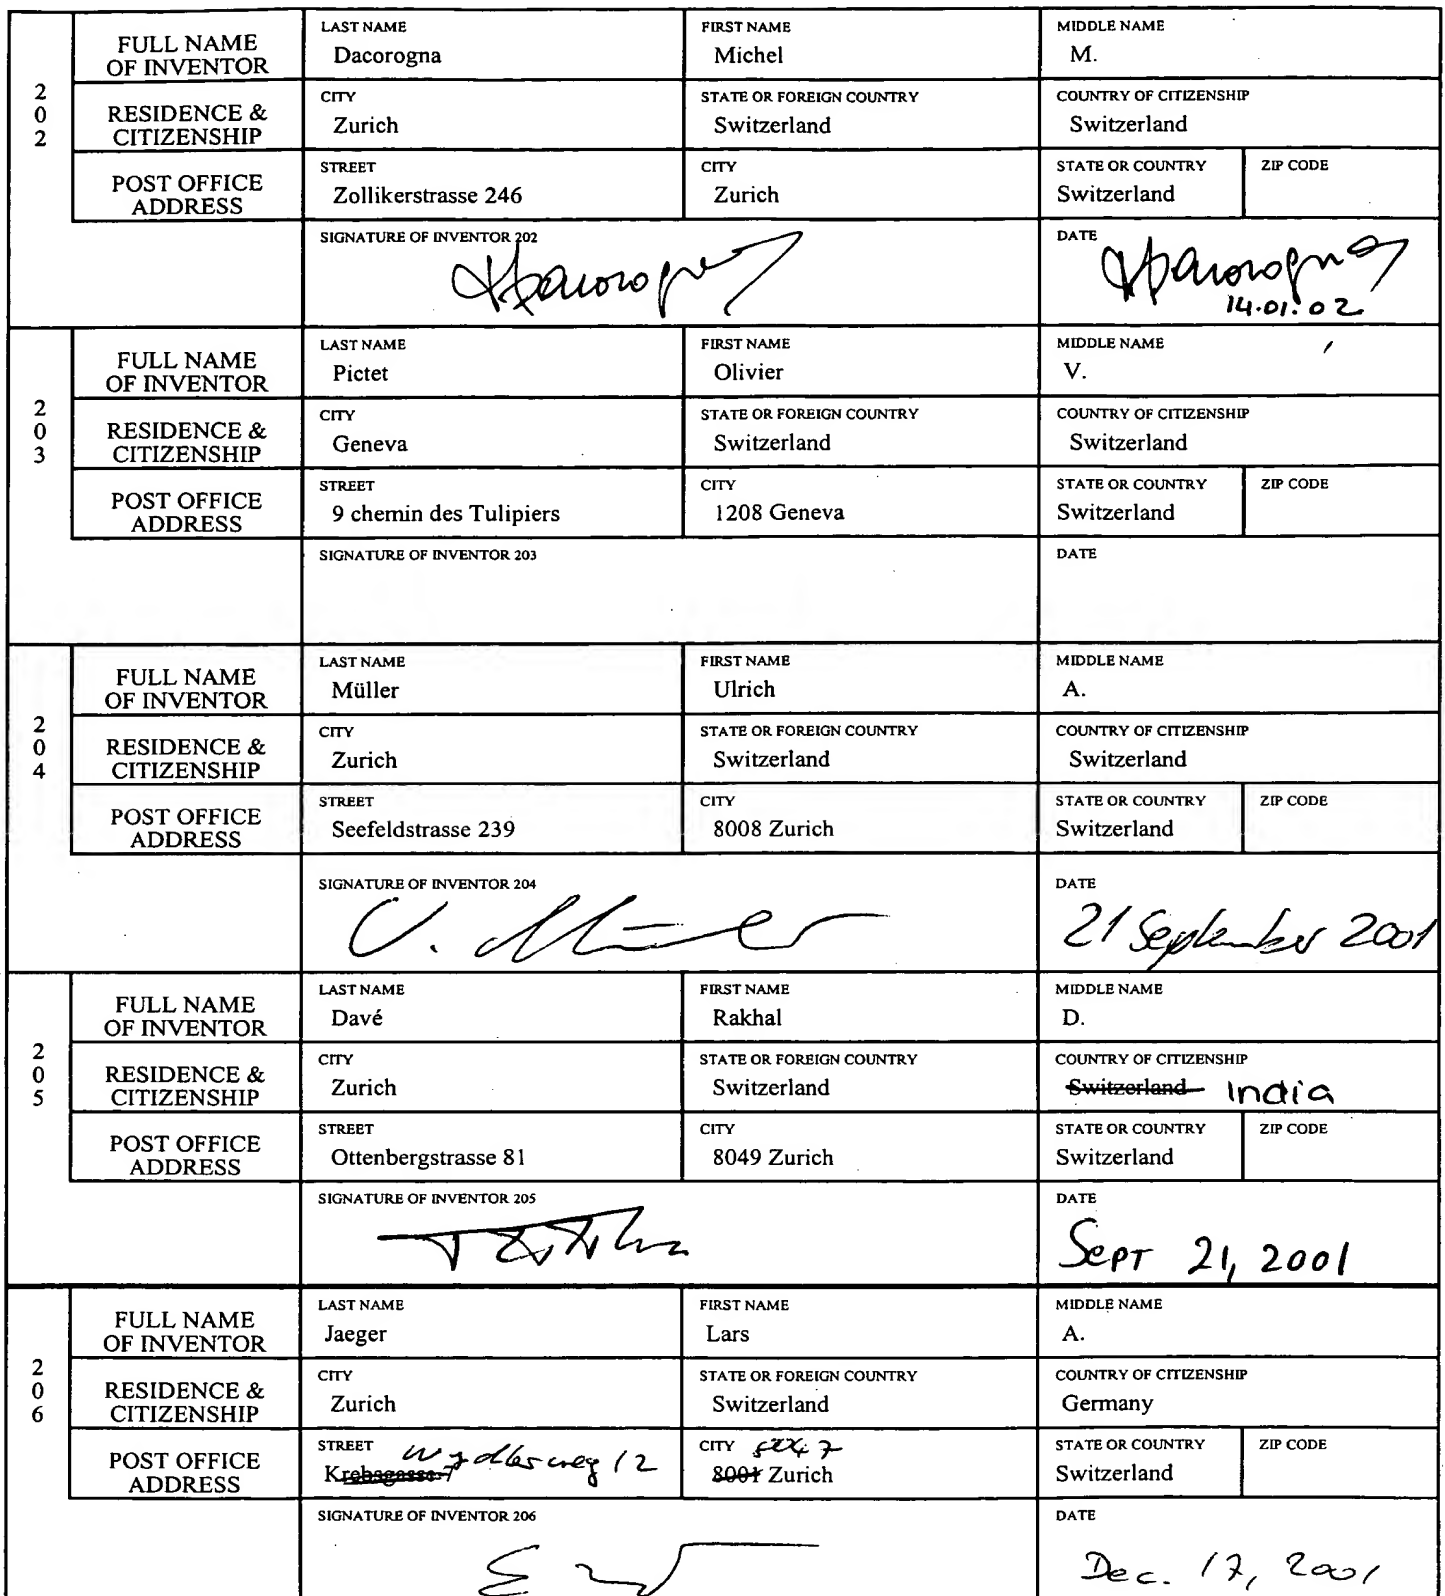 202
FULL NAME OF INVENTOR
LAST NAME Dacorogna
FIRST NAME Michel
MIDDLE NAME M.
RESIDENCE & CITIZENSHIP
CITY Zurich
STATE OR FOREIGN COUNTRY Switzerland
COUNTRY OF CITIZENSHIP Switzerland
POST OFFICE ADDRESS
STREET Zollikerstrasse 246
CITY Zurich
STATE OR COUNTRY Switzerland
ZIP CODE
SIGNATURE OF INVENTOR 202
DATE
14.01.02
203
FULL NAME OF INVENTOR
LAST NAME Pictet
FIRST NAME Olivier
MIDDLE NAME V.
RESIDENCE & CITIZENSHIP
CITY Geneva
STATE OR FOREIGN COUNTRY Switzerland
COUNTRY OF CITIZENSHIP Switzerland
POST OFFICE ADDRESS
STREET 9 chemin des Tulipiers
CITY 1208 Geneva
STATE OR COUNTRY Switzerland
ZIP CODE
SIGNATURE OF INVENTOR 203
DATE
204
FULL NAME OF INVENTOR
LAST NAME Müller
FIRST NAME Ulrich
MIDDLE NAME A.
RESIDENCE & CITIZENSHIP
CITY Zurich
STATE OR FOREIGN COUNTRY Switzerland
COUNTRY OF CITIZENSHIP Switzerland
POST OFFICE ADDRESS
STREET Seefeldstrasse 239
CITY 8008 Zurich
STATE OR COUNTRY Switzerland
ZIP CODE
SIGNATURE OF INVENTOR 204
DATE
21 September 2001
205
FULL NAME OF INVENTOR
LAST NAME Davé
FIRST NAME Rakhal
MIDDLE NAME D.
RESIDENCE & CITIZENSHIP
CITY Zurich
STATE OR FOREIGN COUNTRY Switzerland
COUNTRY OF CITIZENSHIP Switzerland India
POST OFFICE ADDRESS
STREET Ottenbergstrasse 81
CITY 8049 Zurich
STATE OR COUNTRY Switzerland
ZIP CODE
SIGNATURE OF INVENTOR 205
DATE
Sept 21, 2001
206
FULL NAME OF INVENTOR
LAST NAME Jaeger
FIRST NAME Lars
MIDDLE NAME A.
RESIDENCE & CITIZENSHIP
CITY Zurich
STATE OR FOREIGN COUNTRY Switzerland
COUNTRY OF CITIZENSHIP Germany
POST OFFICE ADDRESS
STREET Wydlerweg 12
Krebsgasse 7
CITY
8001 Zurich
STATE OR COUNTRY Switzerland
ZIP CODE
SIGNATURE OF INVENTOR 206
DATE
Dec. 17, 2001